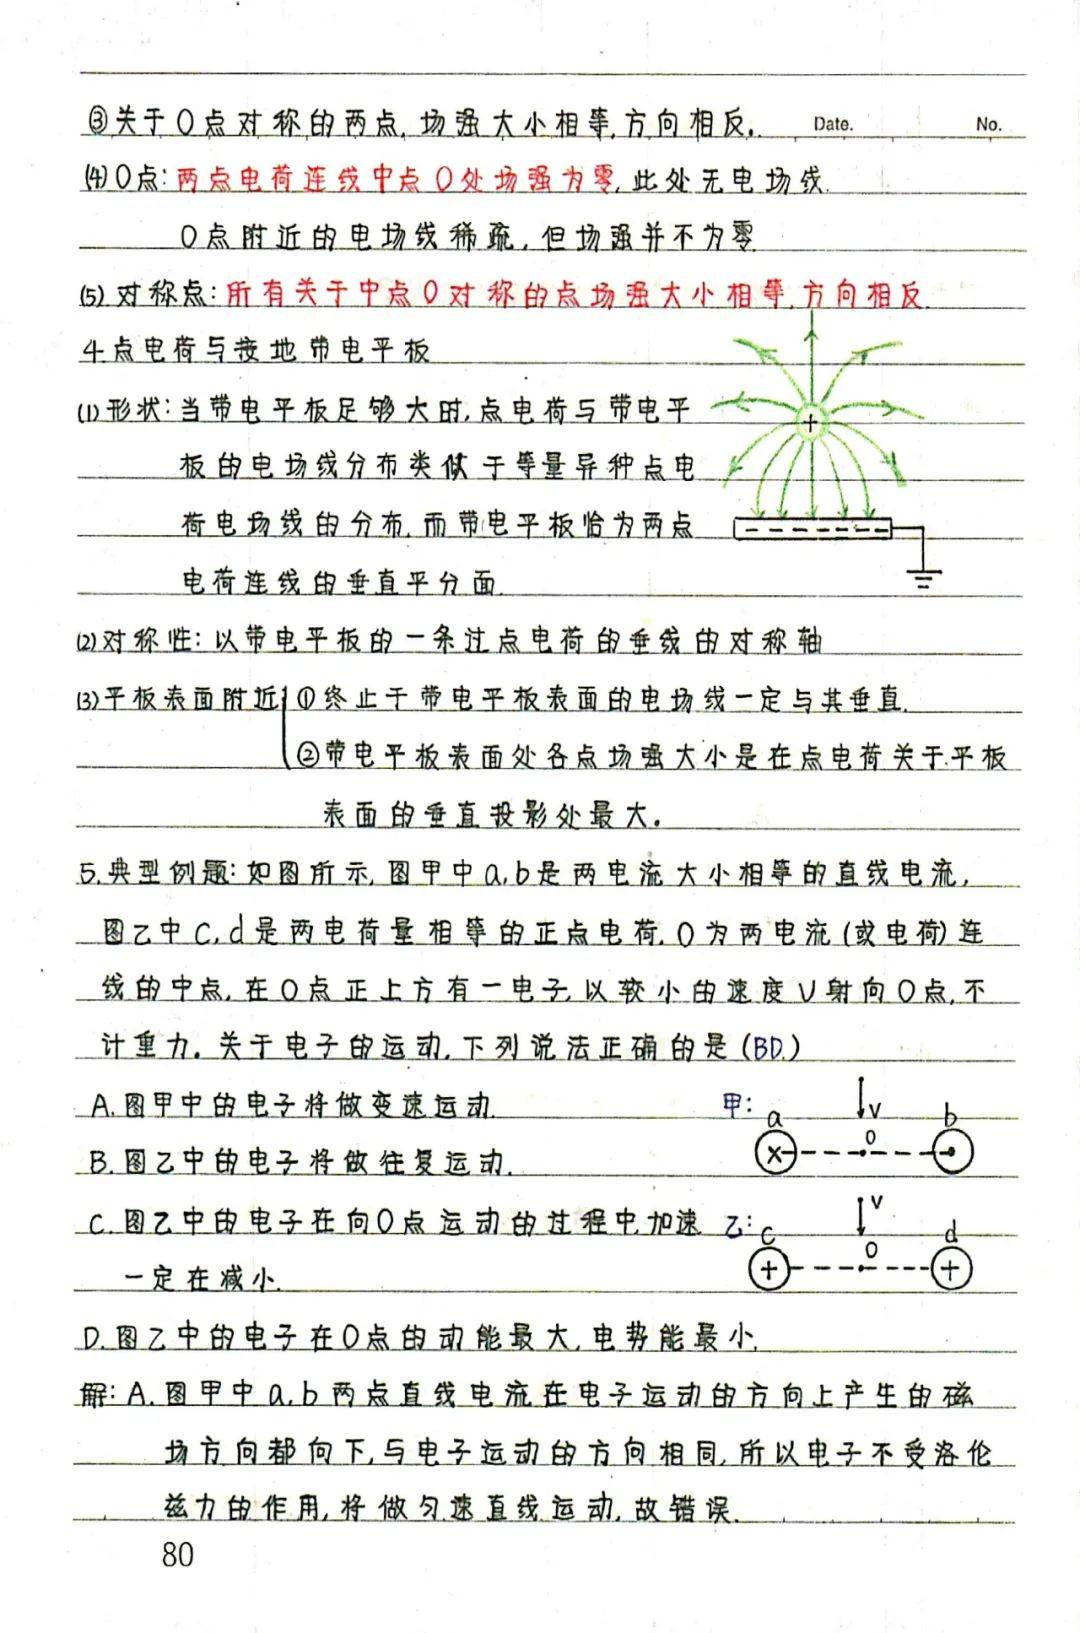 ③关于O点对称的两点,场强大小相等,方向相反. Date. No.
(4)O点:两点电荷连线中点O处场强为零,此处无电场线.
O点附近的电场线稀疏,但场强并不为零
(5)对称点:所有关于中点O对称的点场强大小相等,方向相反
4.点电荷与接地带电平板
(1)形状:当带电平板足够大时,点电荷与带电平
板的电场线分布类似于等量异种点电
荷电场线的分布,而带电平板恰为两点
电荷连线的垂直平分面.
+
(2)对称性:以带电平板的一条过点电荷的垂线的对称轴
(3)平板表面附近 ①终止于带电平板表面的电场线一定与其垂直.
②带电平板表面处各点场强大小是在点电荷关于平板
表面的垂直投影处最大.
5.典型例题:如图所示,图甲中a,b是两电流大小相等的直线电流,
图乙中c,d是两电荷量相等的正点电荷,O为两电流(或电荷)连
线的中点,在O点正上方有一电子,以较小的速度V射向O点,不
计重力.关于电子的运动,下列说法正确的是(BD.)
A.图甲中的电子将做变速运动.
甲: a v b
O
B.图乙中的电子将做往复运动.
C.图乙中的电子在向O点运动的过程中,加速
乙: c v d
O
+ +
一定在减小.
D.图乙中的电子在O点的动能最大,电势能最小.
解:A.图甲中a,b两点直线电流在电子运动的方向上产生的磁
场方向都向下,与电子运动的方向相同,所以电子不受洛伦
兹力的作用,将做匀速直线运动,故错误.
80